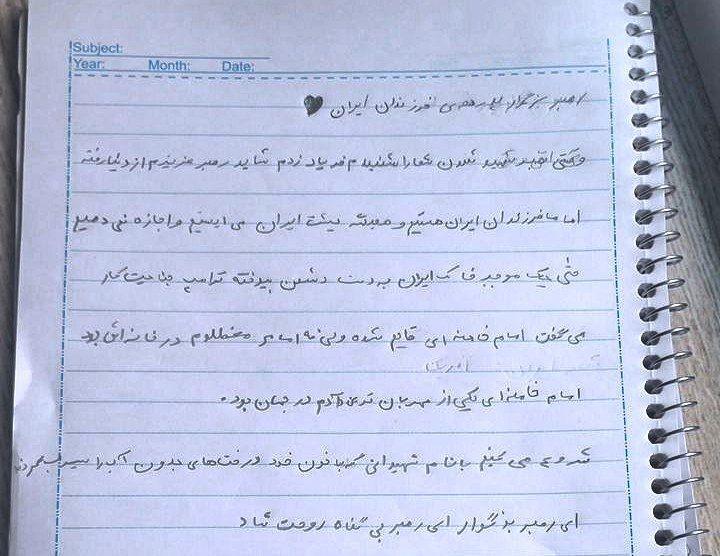 Subject:
Year: Month: Date:
رهبر بزرگوار پدر همه‌ی فرزندان ایران ♥
وقتی شهید شدن شما را شنیدم فریاد زدم شاید رهبر عزیزم از دنیا رفته
اما ما فرزندان ایران هستیم و همیشه پشت ایران می ایستیم و اجازه نمی دهیم
حتی یک وجب خاک ایران به دست دشمن بیوفته ترامپ جنایت کار
می گفت امام خامنه ای قایم شده ولی نه امام مظلوم در خانه اش بود
امام خامنه ای یکی از مهربان ترین آدم در جهان بود.
شروع می کنیم با نام شهیدانی که با خون خود درخت‌های بدون آب را سیراب
ای رهبر بزگوار ای رهبر بی گناه روحت شاد